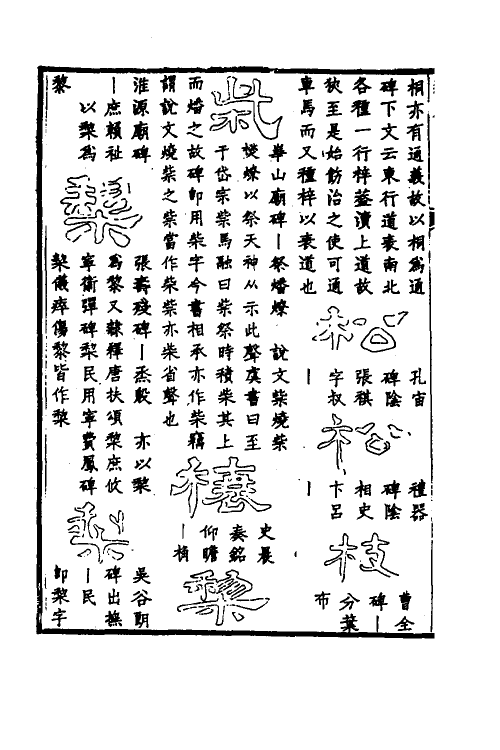 桐亦有通義故以桐為通
碑下文云東行道衰南北
各種一行梓蓋瀆上道故
狄至是始飭治之使可通
車馬而又種梓以衰道也
松
孔宙
碑陰
張祺
字叔
｜
松
禮器
碑陰
相史
卞呂
｜
枝
曹全
碑｜
分葉
布
柴
華山廟碑｜祭燔燎　說文柴燒柴
焚燎以祭天神从示此聲虞書曰至
于岱宗柴馬融曰柴祭時積柴其上
而燔之故碑卽用柴字今書相承亦作柴竊
謂說文燒柴之柴當作柴柴亦柴省聲也
榱
史晨
奏銘
仰瞻
｜桷
棃
淮源廟碑
｜庶賴祉
以棃為
黎
棃
張壽殘碑｜烝殷　亦以棃
為黎又隸釋唐扶頌棃庶攸
寧衛彈碑棃民用寧費鳳碑
棃儀瘁傷黎皆作棃
棃
吳谷朗
碑出撫
｜民
卽棃字